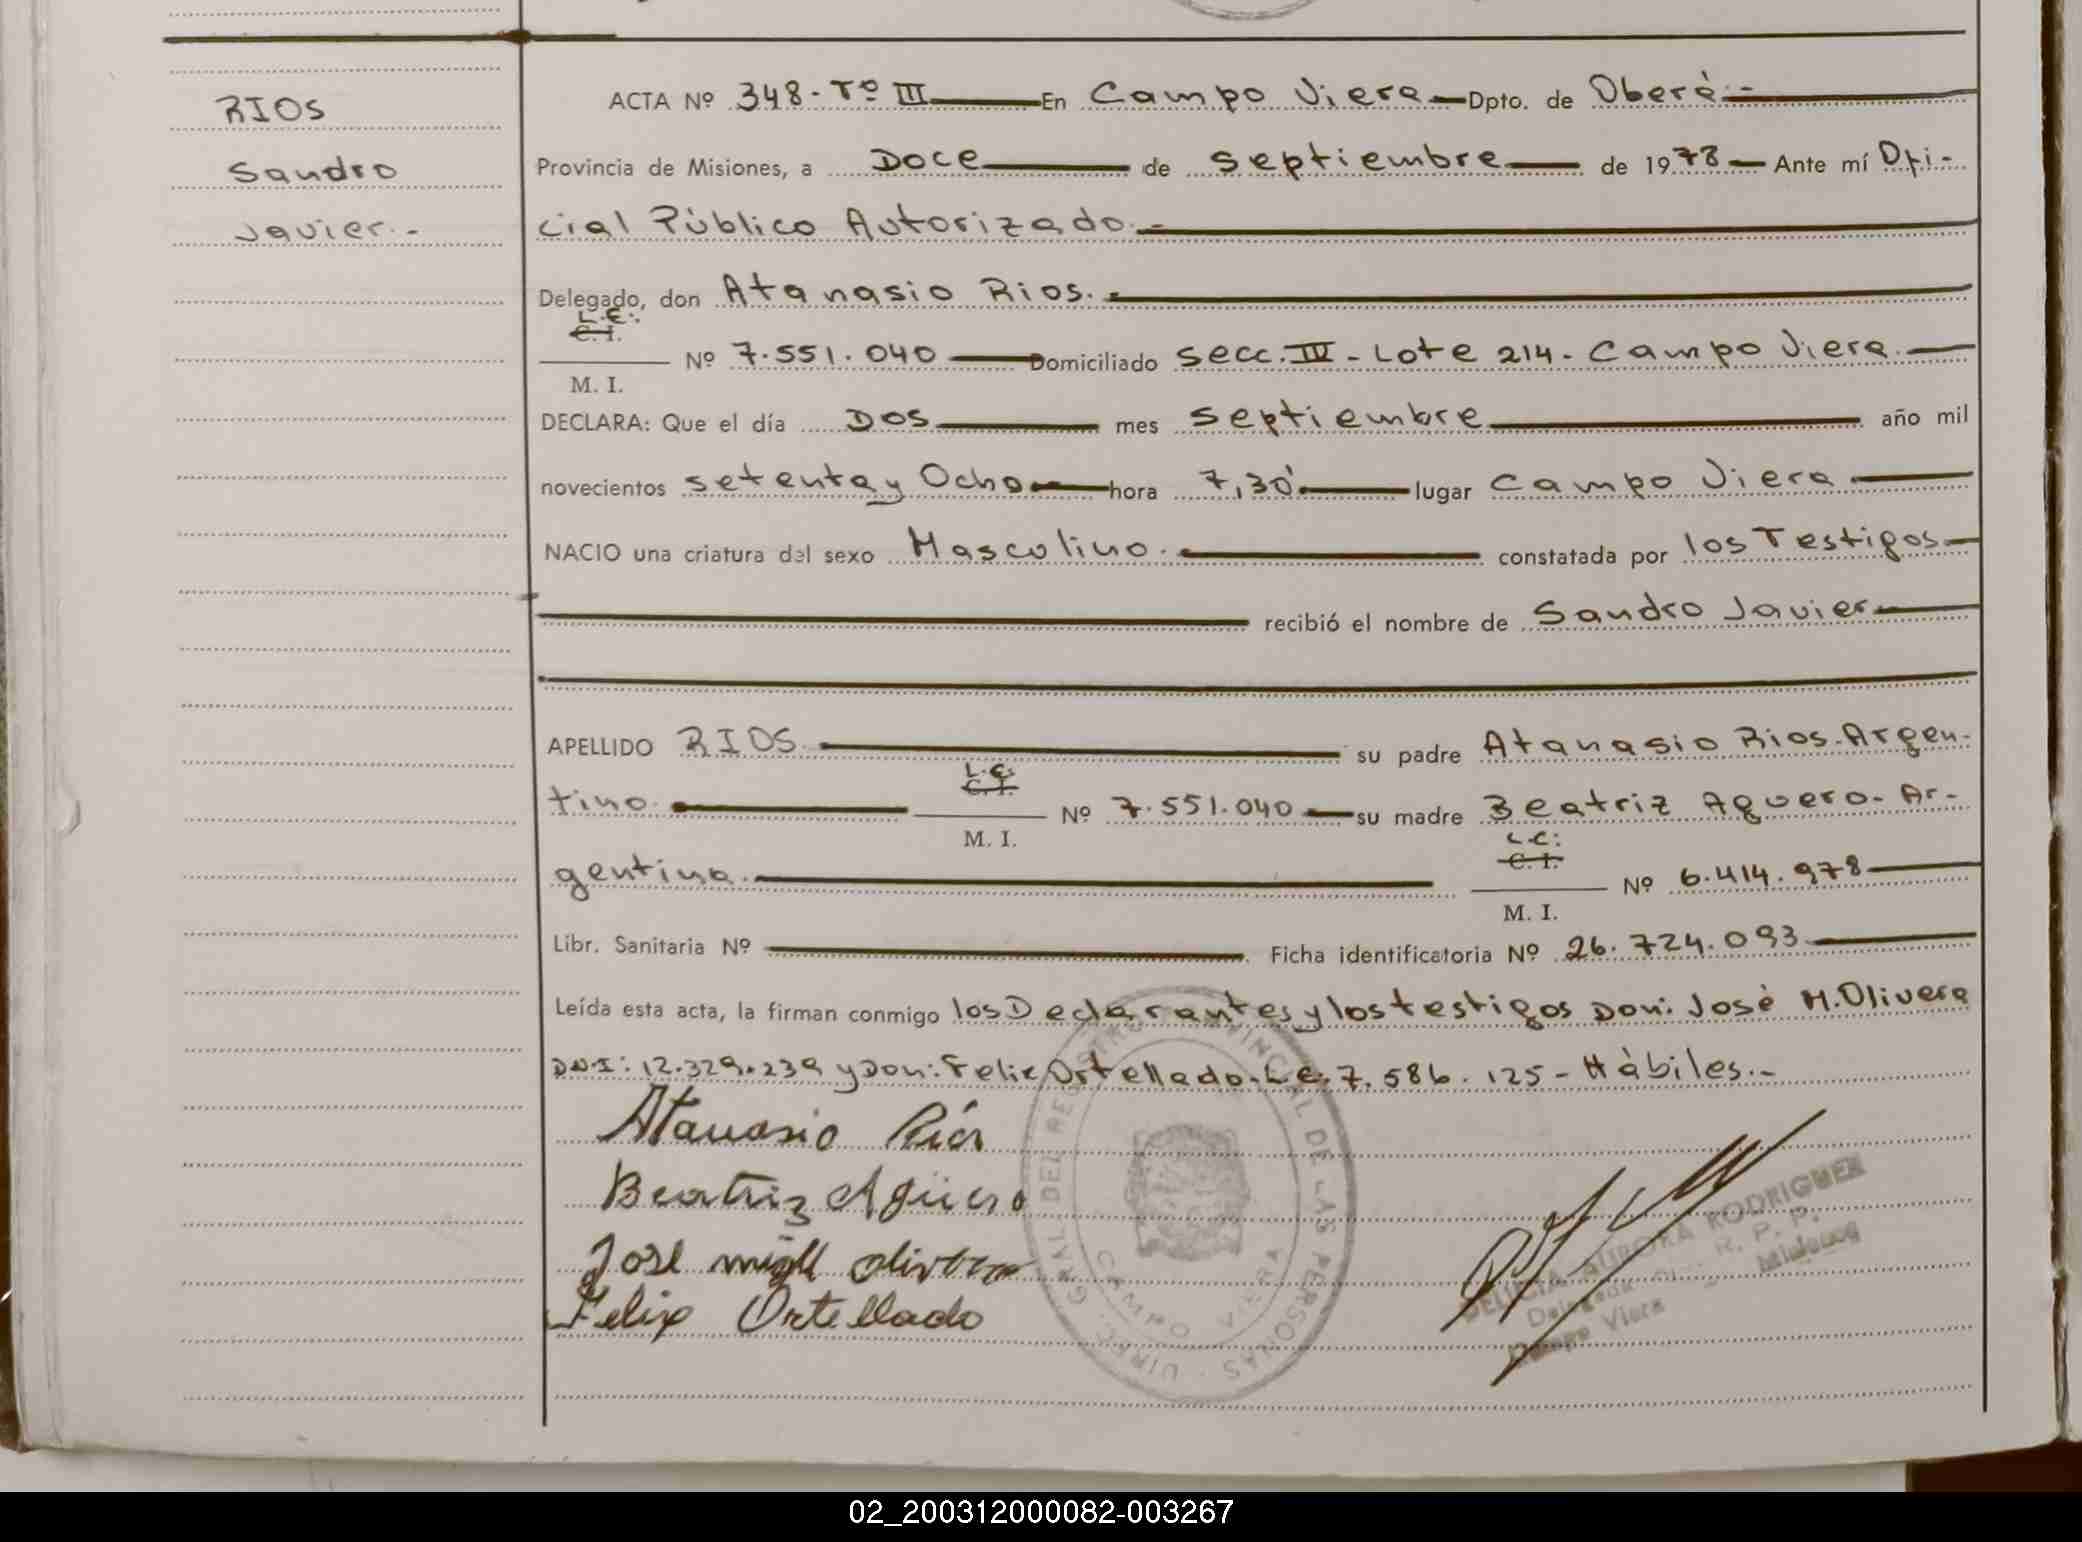 RIOS
Sandro
Javier.-
ACTA Nº 348-Tº III En Campo Viera Dpto. de Oberà.-
Provincia de Misiones, a Doce de septiembre de 1978 Ante mí Ofi-
cial Público Autorizado.-
Delegado, don Atanasio Rios.
L.E.:
C. I.
M. I.
Nº 7.551.040 Domiciliado secc. IV - Lote 214. Campo Viera.
DECLARA: Que el día Dos mes septiembre año mil
novecientos setenta y Ocho hora 7,30' lugar Campo Viera
NACIO una criatura del sexo Masculino. constatada por los Testigos
recibió el nombre de Sandro Javier
APELLIDO RIOS su padre Atanasio Rios. Argen-
tino.
L.E:
C. I.
M. I.
Nº 7.551.040 su madre Beatriz Aguero. Ar-
gentina.
L.C:
C. I.
M. I.
Nº 6.414.978
Libr. Sanitaria Nº Ficha identificatoria Nº 26.724.093
Leída esta acta, la firman conmigo los Declarantes y los testigos Don: José M. Olivera
DNI: 12.329.239 y Don: Felix Ortellado. L.E. 7.586.125 - Hàbiles.-
Atanasio Ríos
Beatriz Agüero
José Olivera
Felix Ortellado
DIREC. GRAL DEL REGISTRO PROVINCIAL DE LAS PERSONAS
CAMPO VIERA
DELICIA AURORA RODRIGUEZ
Delegada R. P. P.
Campo Viera Misiones
02_200312000082-003267